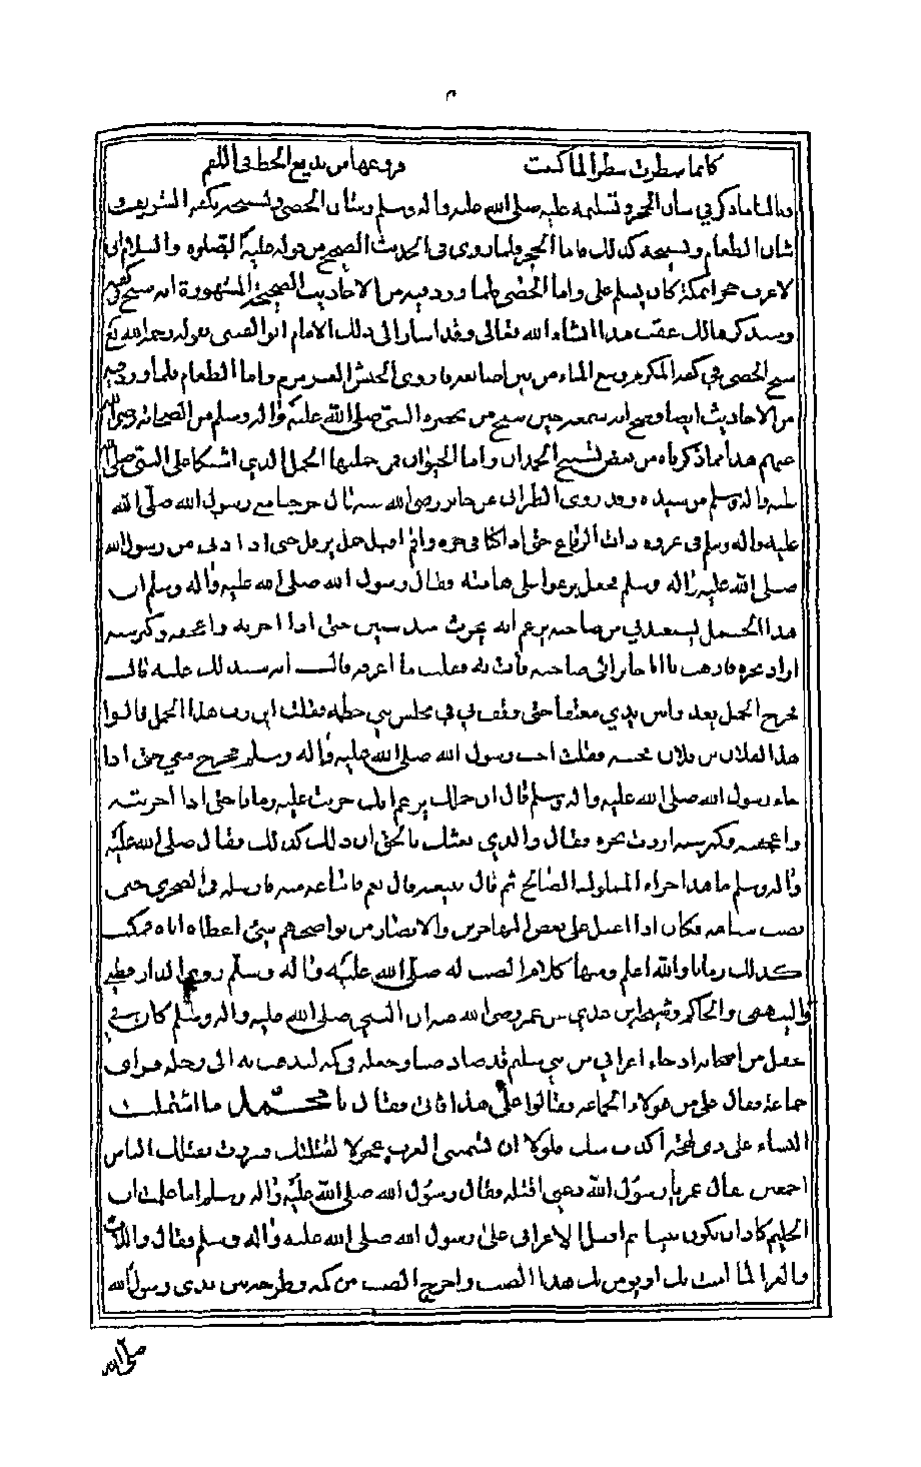 كانما سطرت سطرا لما كتبت فروعها من بديع الخط في اللقم
وقالنا ما ذكر في سان الحجر وتسليمه عليه صلى الله عليه واله وسلم وشان الحصى وتسبيحه بكفه الشريفة
شان الطعام وتسبيحه كذلك فاما الحجر فلما روى في الحديث الصحيح من قوله عليه الصلوه والسلام اني
لاعرف حجرا بمكة كان يسلم على واما الحصى فلما ورد فيه من الاحاديث الصحيحة المشهورة انه سبح في كفه
وسنذكر ذلك عقب هذا انشاء الله تعالى وقد اشار الى ذلك الامام ابو القسم بقوله رحمه الله
سبح الحصى في كفه المكرم ونبع الماء من بين اصابعه فاروى الجيش العرمرم واما الطعام فلما ورد فيه
من الاحاديث ايضا وصح انه سمعه حين سبح من بحضره النبي صلى الله عليه واله وسلم من الصحابه رضي الله
عنهم هذا ما ذكرناه من بعض تسبيح الجمادات واما الحيوان فمن جملتها الجمل الذي اشتكا على النبي صلى الله
عليه واله وسلم من سيده وقد روى الطبراني عن جابر رضي الله عنه قال خرجنا مع رسول الله صلى الله
عليه واله وسلم في غزوه ذات الرقاع حتى اذا كنا في حره واقم اقبل جمل يرفل حتى اذا دنى من رسول الله
صلى الله عليه واله وسلم فجعل يرغوا على هامته فقال رسول الله صلى الله عليه واله وسلم ان
هذا الجمل يستعديني من صاحبه يزعم انه يحرث منذ سنين حتى اذا اجربه واعجفه وكبر سنه
اراد نحره فاذهب يا جابر الى صاحبه فات به فقلت ما اعرفه قال انه سيدلك عليه قال
فخرج الجمل بعد ما بين يدي معنقا حتى وقف بي في مجلس بني خطمه فقلت اين رب هذا الجمل قالوا
هذا لفلان بن فلان فجئته فقلت اجب رسول الله صلى الله عليه واله وسلم فخرج معي حتى اذا
جاء رسول الله صلى الله عليه واله وسلم قال ان جملك يزعم انك حرثت عليه زمانا حتى اذا اجربته
واعجفته وكبر سنه اردت نحره فقال والذي بعثك بالحق ان ذلك كذلك فقال صلى الله عليه
واله وسلم ما هذا جزاء المملوك الصالح ثم قال تبيعه قال نعم فابتاعه منه فارسله في الصحرى حتى
نصب سنامه فكان اذا اعتل على بعض المهاجرين والانصار من نواضحهم شيئ اعطاه اياه فمكث
كذلك زمانا والله اعلم ومنها كلام الضب له صلى الله عليه واله وسلم روى الدارقطني
والبيهقي والحاكم وشيخه ابن عدي عن عمر رضي الله عنه ان النبي صلى الله عليه واله وسلم كان في
محفل من اصحابه اذ جاء اعرابي من بني سليم قد صاد ضبا وجعله في كمه ليذهب به الى رحله فراى
جماعة فقال على من هولاء الجماعه فقالوا على هذا فاتى وقال يا محمد ما اشتملت
النساء على ذي لهجة اكذب منك فلولا ان تسمى العرب عجولا لقتلتك فسررت بقتلك الناس
اجمعين فقال عمر يا رسول الله دعني اقتله فقال رسول الله صلى الله عليه واله وسلم اما علمت ان
الحليم كاد ان يكون نبيا ثم اقبل الاعرابي على رسول الله صلى الله عليه واله وسلم فقال واللات
والعزا لا امنت بك او يومن بك هذا الضب واخرج الضب من كمه وطرحه بين يدي رسول الله
صلى الله